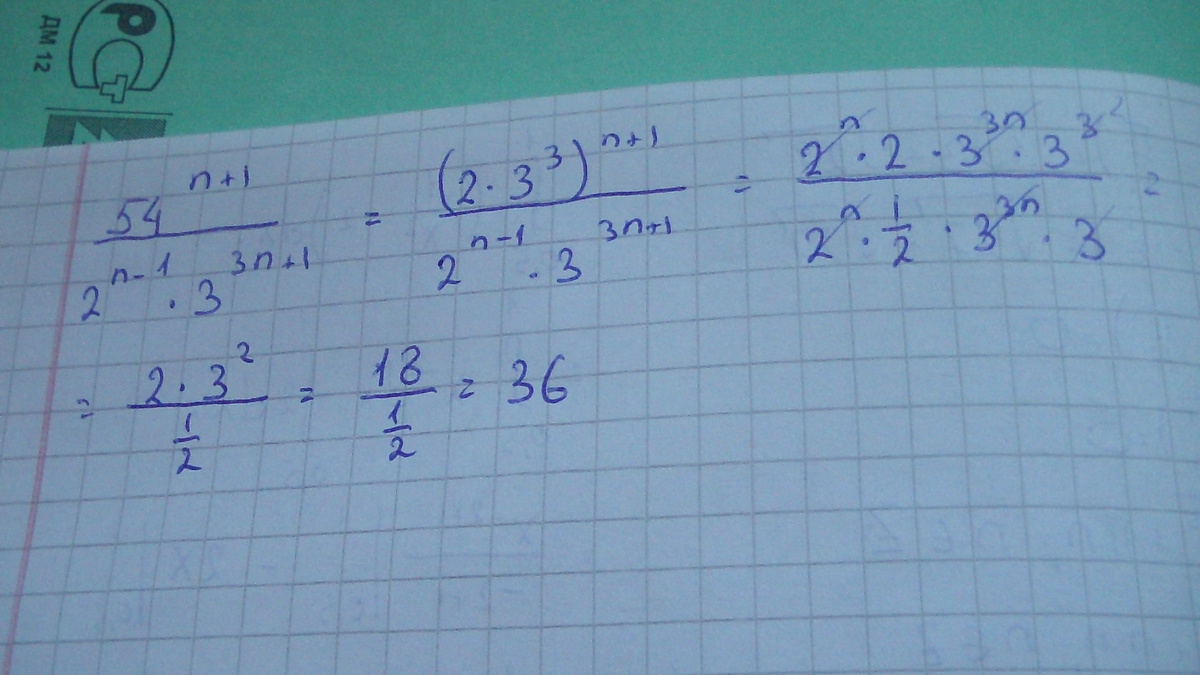 РСТ
ДМ 12
54^{n+1} / (2^{n-1} · 3^{3n+1}) = (2 · 3^3)^{n+1} / (2^{n-1} · 3^{3n+1}) = (2^n · 2 · 3^{3n} · 3^{3 2}) / (2^n · 1/2 · 3^{3n} · 3) =
= (2 · 3^2) / (1/2) = 18 / (1/2) = 36